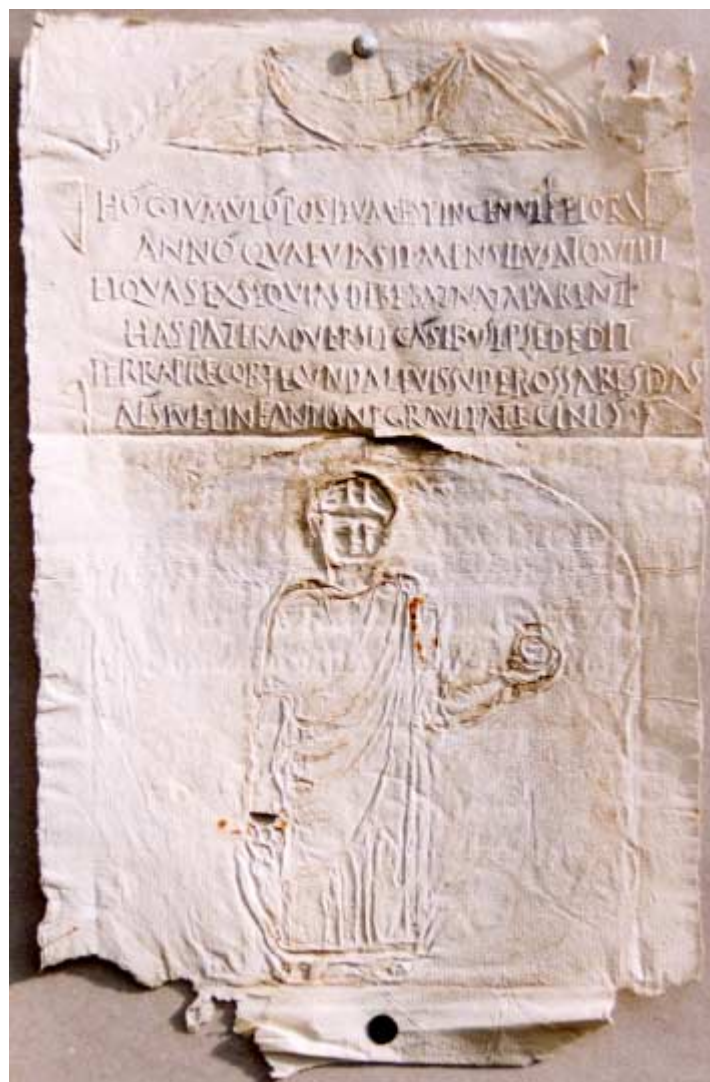 HOC TVMVLO POSITVM EST
ANNO QVAE VIXSIT MENSIBVS ATQV VIIII
ET QVAS EXSEQVIAS DEBEBAT NATA PARENTI
HAS PATER ADVERSIS CASIBVS IPSE DEDIT
TERRA PRECOR FECVNDA LEVIS SVPER OSSA RESIDAS
AESTVET INFANTIS NE GRAVITATE CINIS